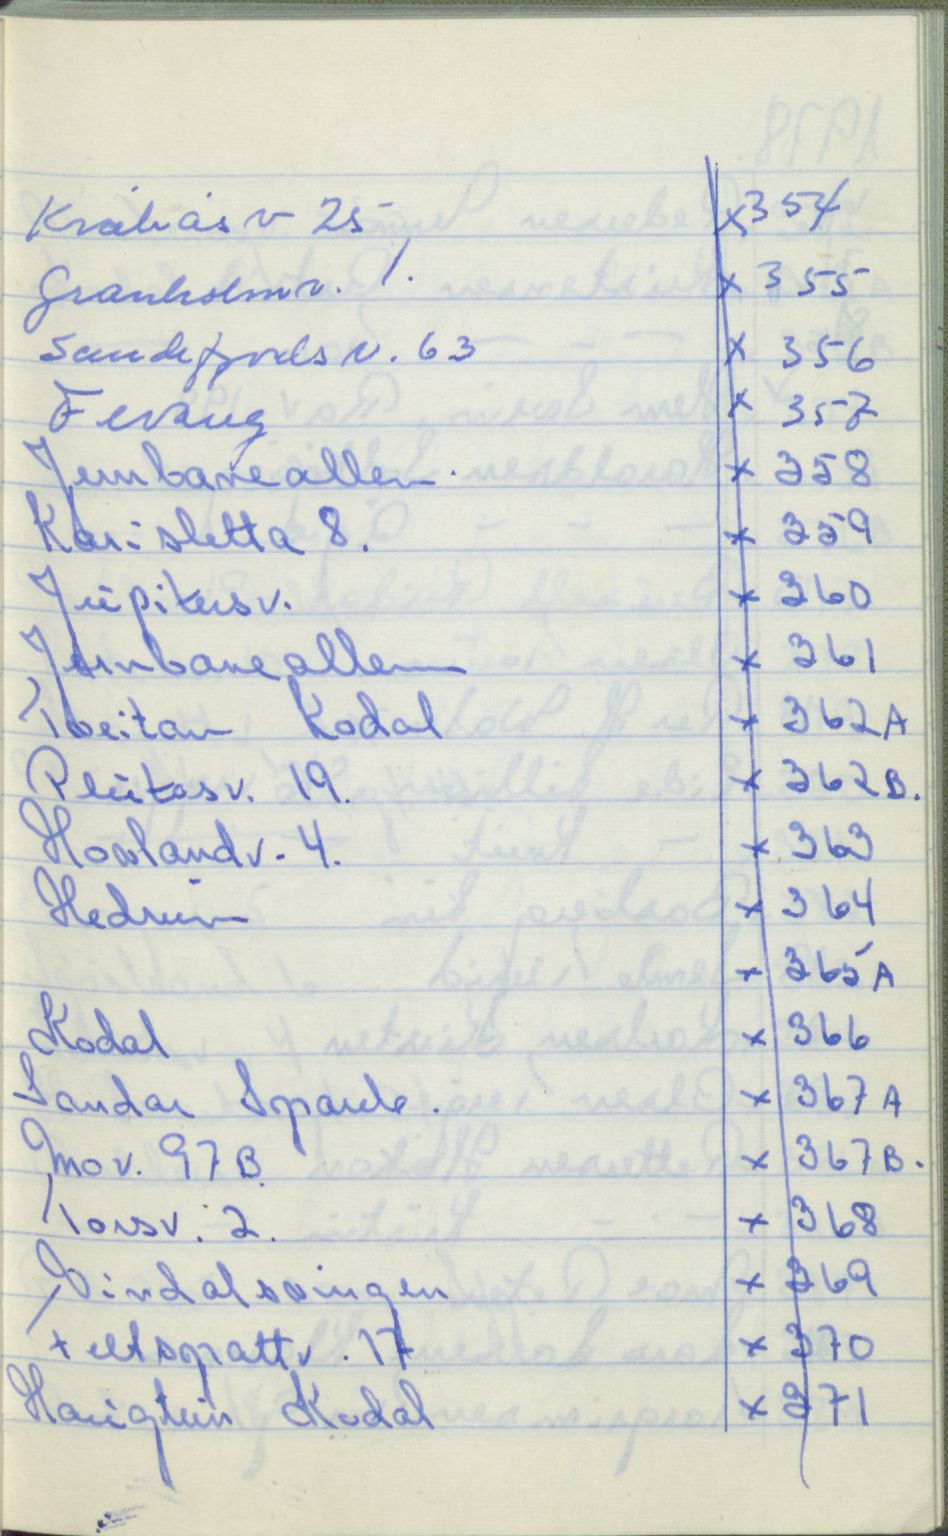 Kråkåsv 25 x 354
Granholmv. 1. x 355
Sandefjordsv. 63 x 356
Fevang x 357
Jernbanealleen. x 358
Karisletta 8. x 359
Jupitersv. x 360
Jernbanealleen x 361
Tveitan Kodal x 362A
Plutosv. 19. x 362B.
Hovlandv. 4. x 363
Hedrum x 364
x 365A
Kodal x 366
Sandar x 367A
Mov. 97B x 367B.
Torsv. 2. x 368
Vindalsvingen x 369
Feltspattv. 17 x 370
Kodal x 371